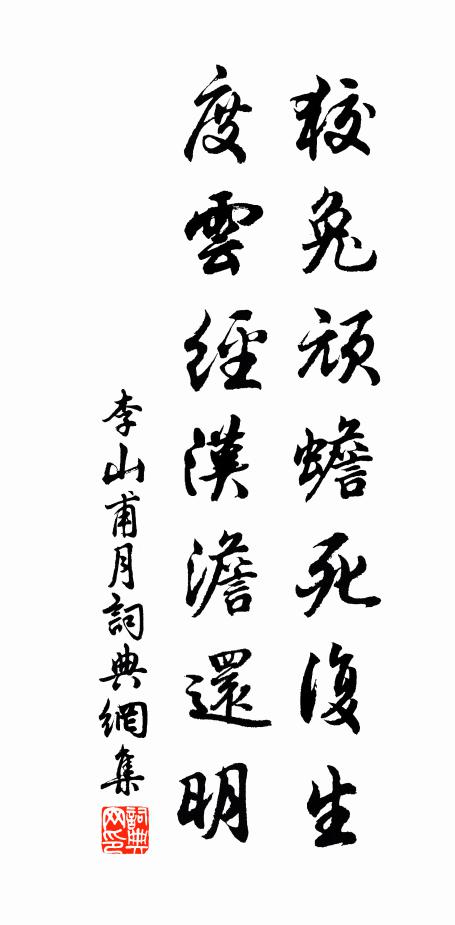 狡兔頑蟾死復生
度雲經漢澹還明
李山甫月詞典網集
詞典網印